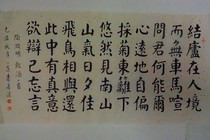 結廬在人境
而無車馬喧
問君何能爾
心遠地自偏
采菊東籬下
悠然見南山
山氣日夕佳
飛鳥相與還
欲辯已忘言
陶淵明飲酒